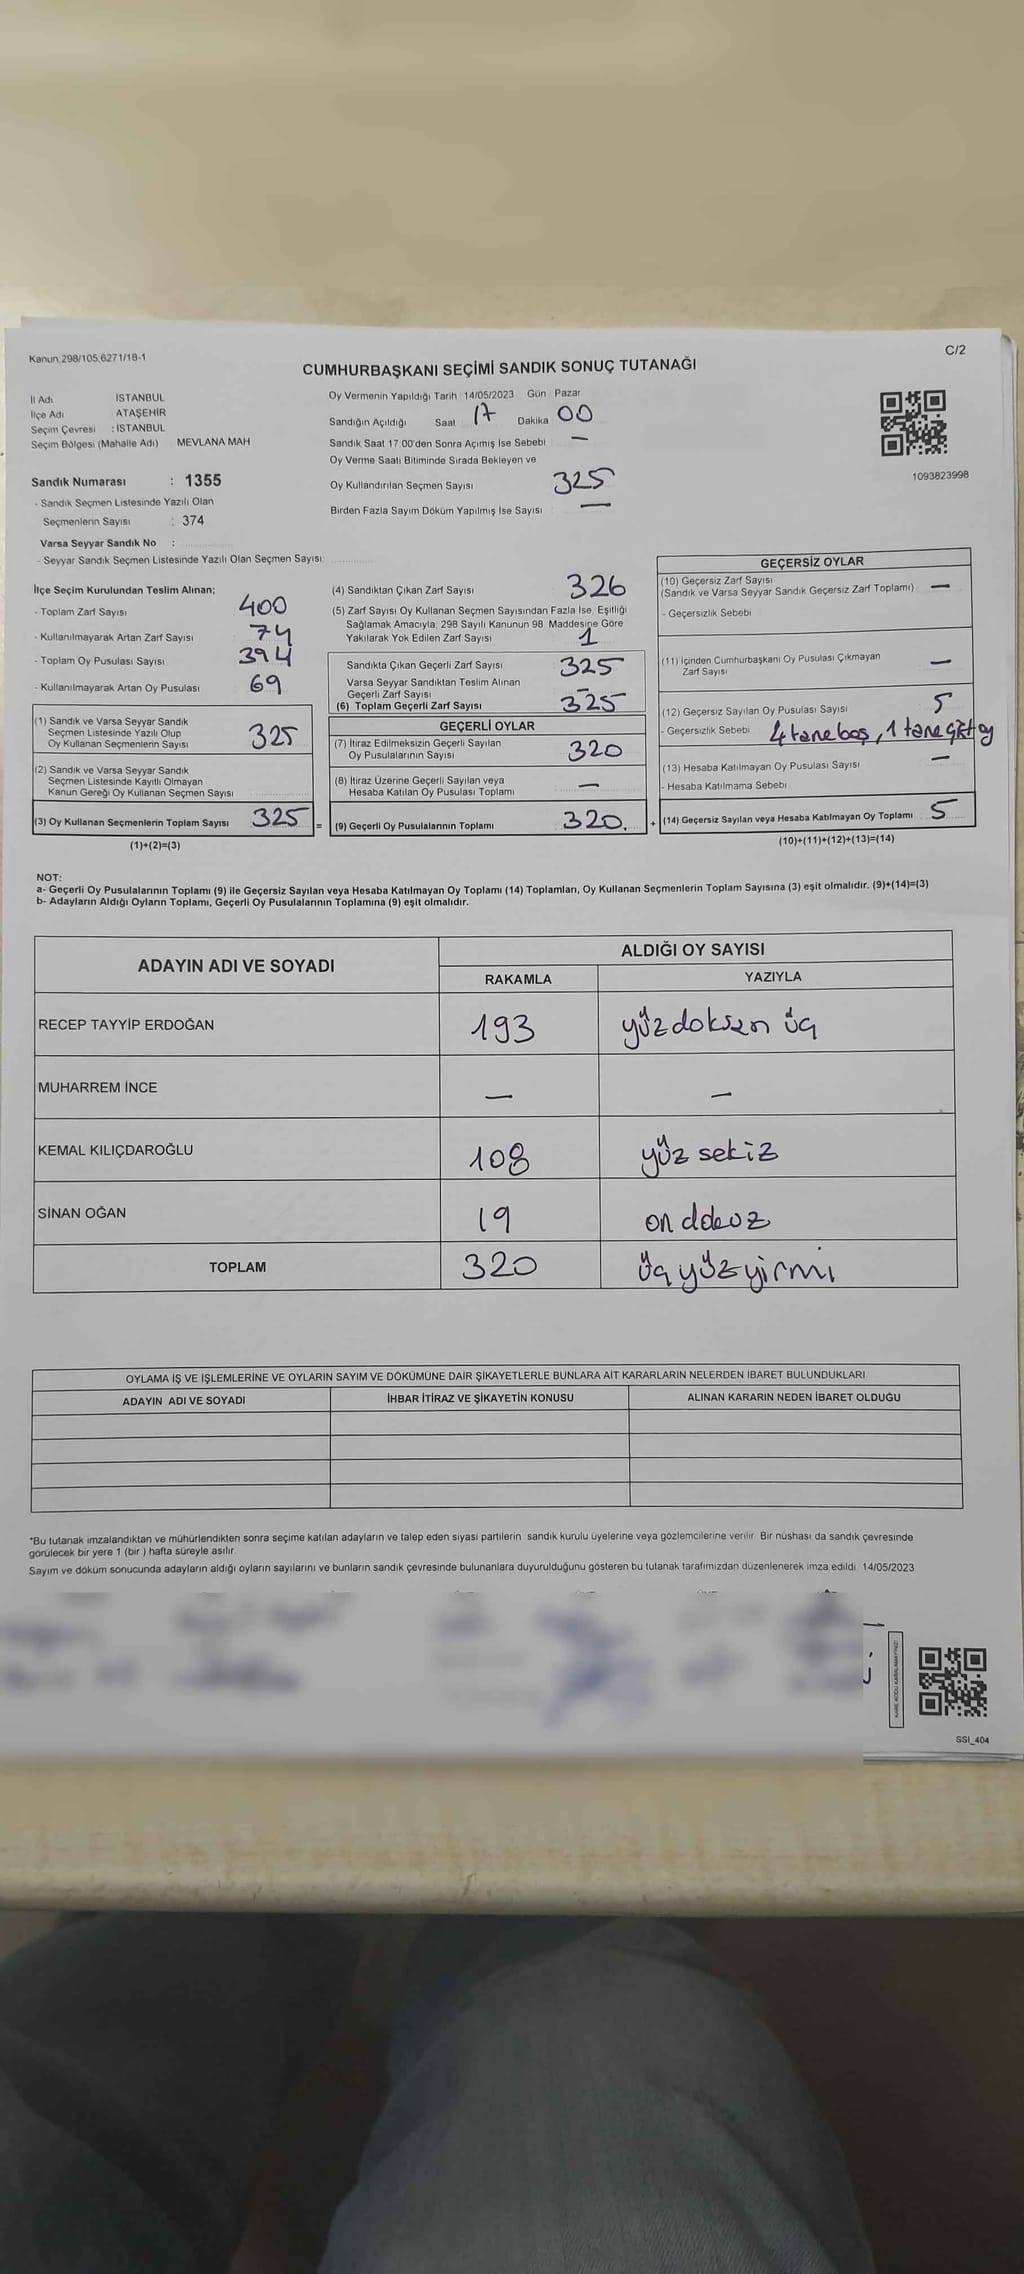 Kanun 298/105;6271/18-1
C/2
CUMHURBAŞKANI SEÇİMİ SANDIK SONUÇ TUTANAĞI
İl Adı İSTANBUL
İlçe Adı ATAŞEHİR
Seçim Çevresi : İSTANBUL
Seçim Bölgesi (Mahalle Adı) MEVLANA MAH
Sandık Numarası : 1355
- Sandık Seçmen Listesinde Yazılı Olan
Seçmenlerin Sayısı : 374
Varsa Seyyar Sandık No :
- Seyyar Sandık Seçmen Listesinde Yazılı Olan Seçmen Sayısı:
Oy Vermenin Yapıldığı Tarih 14/05/2023 Gün Pazar
Sandığın Açıldığı Saat 17 Dakika 00
Sandık Saat 17.00'den Sonra Açımış İse Sebebi —
Oy Verme Saati Bitiminde Sırada Bekleyen ve
Oy Kullandırılan Seçmen Sayısı 325
Birden Fazla Sayım Döküm Yapılmış İse Sayısı —
1093823998
İlçe Seçim Kurulundan Teslim Alınan;
- Toplam Zarf Sayısı 400
- Kullanılmayarak Artan Zarf Sayısı 74
- Toplam Oy Pusulası Sayısı 394
- Kullanılmayarak Artan Oy Pusulası 69
(1) Sandık ve Varsa Seyyar Sandık
Seçmen Listesinde Yazılı Olup
Oy Kullanan Seçmenlerin Sayısı 325
(2) Sandık ve Varsa Seyyar Sandık
Seçmen Listesinde Kayıtlı Olmayan
Kanun Gereği Oy Kullanan Seçmen Sayısı
(3) Oy Kullanan Seçmenlerin Toplam Sayısı 325 =
(1)+(2)=(3)
(4) Sandıktan Çıkan Zarf Sayısı 326
(5) Zarf Sayısı Oy Kullanan Seçmen Sayısından Fazla İse, Eşitliği
Sağlamak Amacıyla, 298 Sayılı Kanunun 98. Maddesine Göre
Yakılarak Yok Edilen Zarf Sayısı 1
Sandıkta Çıkan Geçerli Zarf Sayısı 325
Varsa Seyyar Sandıktan Teslim Alınan
Geçerli Zarf Sayısı —
(6) Toplam Geçerli Zarf Sayısı 325
GEÇERLİ OYLAR
(7) İtiraz Edilmeksizin Geçerli Sayılan
Oy Pusulalarının Sayısı 320
(8) İtiraz Üzerine Geçerli Sayılan veya
Hesaba Katılan Oy Pusulası Toplamı —
(9) Geçerli Oy Pusulalarının Toplamı 320. +
GEÇERSİZ OYLAR
(10) Geçersiz Zarf Sayısı
(Sandık ve Varsa Seyyar Sandık Geçersiz Zarf Toplamı) —
- Geçersizlik Sebebi
(11) İçinden Cumhurbaşkanı Oy Pusulası Çıkmayan
Zarf Sayısı —
(12) Geçersiz Sayılan Oy Pusulası Sayısı 5
- Geçersizlik Sebebi 4 tane boş, 1 tane çift oy
(13) Hesaba Katılmayan Oy Pusulası Sayısı —
- Hesaba Katılmama Sebebi
(14) Geçersiz Sayılan veya Hesaba Katılmayan Oy Toplamı 5
(10)+(11)+(12)+(13)=(14)
NOT:
a- Geçerli Oy Pusulalarının Toplamı (9) ile Geçersiz Sayılan veya Hesaba Katılmayan Oy Toplamı (14) Toplamları, Oy Kullanan Seçmenlerin Toplam Sayısına (3) eşit olmalıdır. (9)+(14)=(3)
b- Adayların Aldığı Oyların Toplamı, Geçerli Oy Pusulalarının Toplamına (9) eşit olmalıdır.
ADAYIN ADI VE SOYADI
ALDIĞI OY SAYISI
RAKAMLA YAZIYLA
RECEP TAYYİP ERDOĞAN 193 yüzdoksan üç
MUHARREM İNCE — —
KEMAL KILIÇDAROĞLU 108 yüz sekiz
SİNAN OĞAN 19 on dokuz
TOPLAM 320 üç yüz yirmi
OYLAMA İŞ VE İŞLEMLERİNE VE OYLARIN SAYIM VE DÖKÜMÜNE DAİR ŞİKAYETLERLE BUNLARA AİT KARARLARIN NELERDEN İBARET BULUNDUKLARI
ADAYIN ADI VE SOYADI İHBAR İTİRAZ VE ŞİKAYETİN KONUSU ALINAN KARARIN NEDEN İBARET OLDUĞU
*Bu tutanak imzalandıktan ve mühürlendikten sonra seçime katılan adayların ve talep eden siyasi partilerin sandık kurulu üyelerine veya gözlemcilerine verilir. Bir nüshası da sandık çevresinde
görülecek bir yere 1 (bir) hafta süreyle asılır.
Sayım ve döküm sonucunda adayların aldığı oyların sayılarını ve bunların sandık çevresinde bulunanlara duyurulduğunu gösteren bu tutanak tarafımızdan düzenlenerek imza edildi. 14/05/2023
SSI_404